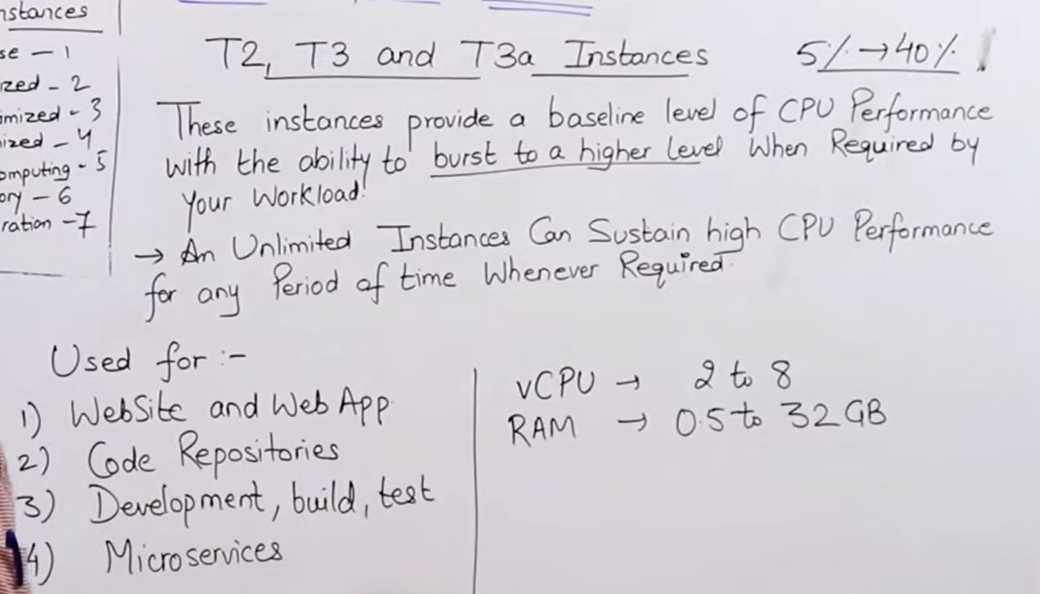 nstances
se - 1
zed - 2
imized - 3
ized - 4
omputing - 5
ory - 6
ration - 7
T2, T3 and T3a Instances 5% → 40%
These instances provide a baseline level of CPU Performance
with the ability to burst to a higher level When Required by
your Workload.
→ An Unlimited Instances Can Sustain high CPU Performance
for any Period of time Whenever Required.
Used for :-
1) WebSite and Web App
2) Code Repositories
3) Development, build, test
4) Microservices
vCPU → 2 to 8
RAM → 0.5 to 32 GB